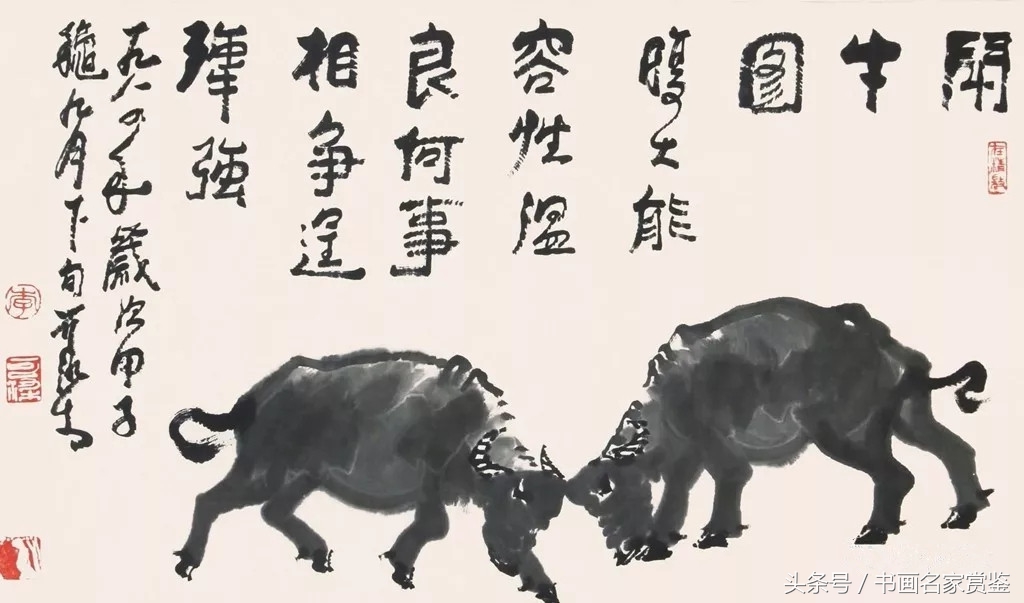 鬥牛圖
腹大能
容性溫
良何事
相爭逞
強
一九八四年歲次甲子
龝九月下旬可染
李
头条号 / 书画名家赏鉴